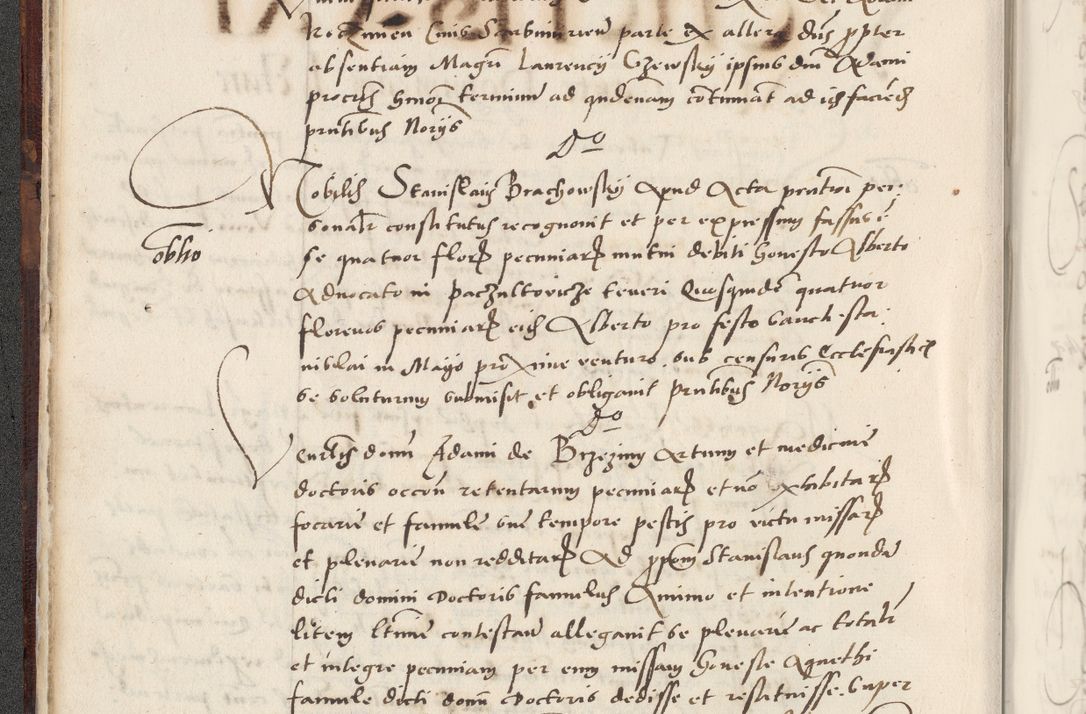 parte ex altera dns propter
absentiam Magri Laurency Gzewsky ipsius dni Adami
procris hmoi terminum ad qndenam contumat ad id faciend
pntibus Norys
Do
Nobilis Stanislaus Brachowsky Apud Acta pntia per
sonalr constitutus recognovit et per expressum fassus e
oblio
se quatuor floren pecuniar mutui debiti honesto Alberto
Advocato in Paczultovicze teneri Quosquidem quatuor
florenos pecuniar eidem Alberto pro festo Sancti Sta
nislai in Mayo proxime venturo sub censuris Ecclesiastic
se soluturum submisit et obligavit pntibus Norys
Do
Venrlis domi Adami de Brzeziny Artium et medicine
doctoris occon retentarum pecuniar et no exhibitar
focarie et famule sue tempore pestis pro victu missar
et plenarie non redditar Ad prm Stanislaus quonda
dicti domini Doctoris famulus Animo et intentione
litem ltime contestan allegavit se plenarie ac totalr
et integre pecuniam per eum missam honeste Agnethi
famule dicti domi Doctoris dedisse et restituisse. Super